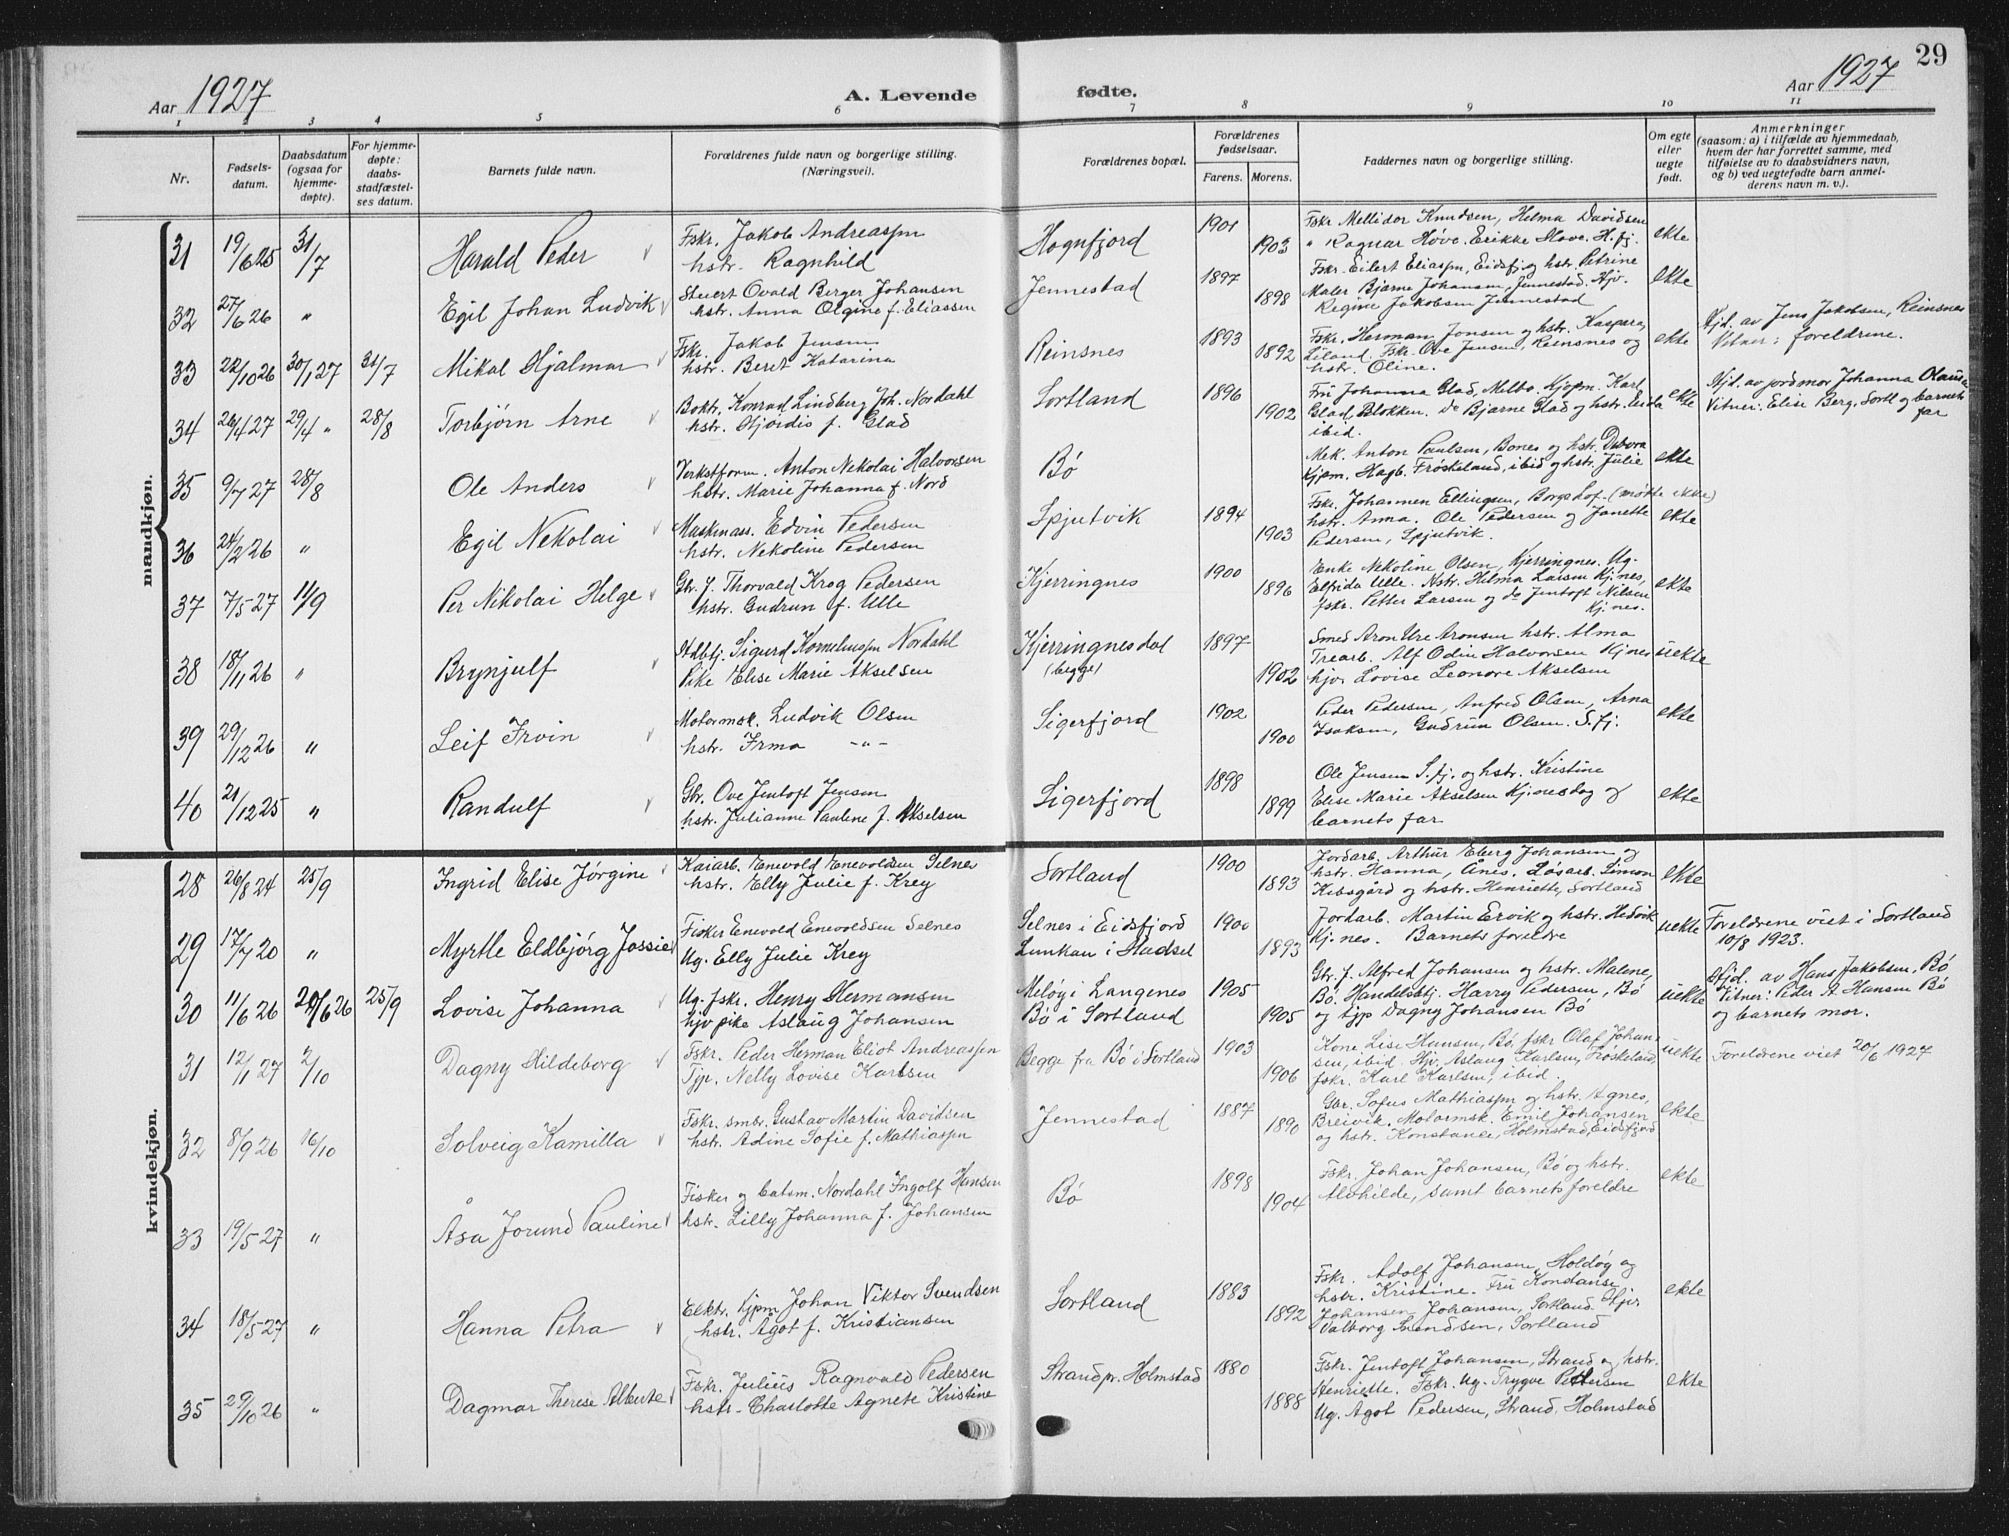 29
Aar 1927
A. Levende fødte.
Aar 1927
1 2 3 4 5 6 7 8 9 10 11
Nr.
Fødsels-
datum.
Daabsdatum
(ogsaa for
hjemme-
døpte).
For hjemme-
døpte:
daabs-
stadfæstel-
ses datum.
Barnets fulde navn.
Forældrenes fulde navn og borgerlige stilling.
(Næringsvei).
Forældrenes bopæl.
Forældrenes
fødselsaar.
Farens. Morens.
Faddernes navn og borgerlige stilling.
Om egte
eller
uegte
født.
Anmerkninger
(saasom: a) i tilfælde av hjemmedaab,
hvem der har forrettet samme, med
tilføielse av to daabsvidners navn,
og b) ved uegtefødte barn anmel-
derens navn m. v.).
mandkjøn.
31 19/6 25 31/7 Harald Peder
Fskr. Jakob Andreassen
hstr. Ragnhild
Hognfjord 1901 1903
Fskr Mellidor Knudsen, Helma Davidsen
" Ragnar Hove. Erikke Hove. H.fj.
ekte
32 27/6 26 " Egil Johan Ludvik
Stuert Ovald Berger Johansen
hstr. Anna Olgine f. Eliassen
Jennestad 1897 1898
Fskr. Eilert Eliassen, Eidsfj og hstr. Petrine
Maler Bjarne Johansen, Jennestad. Hjv.
Regine Jakobsen Jennestad
ekte
33 22/10 26 30/1 27 31/7 Mikal Hjalmar
Fskr. Jakob Jensen
hstr. Beret Katarina
Reinsnes 1893 1892
Fskr. Herman Jonsen og hstr. Kaspara,
Liland. Fsk. Ove Jensen, Reinsnes og
hstr. Oline.
ekte
Hjd. av Jens Jakobsen, Reinsnes
Vitner: foreldrene.
34 26/4 27 29/4 " 28/8 Torbjørn Arne
Boktr. Konrad Lindberg Joh. Nordahl
hstr. Hjørdis f. Glad
Sortland 1896 1902
Fru Johanna Glad, Melbo. Kjøpm. Karl
Glad, Blokken. Do Bjarne Glad og hstr.
ibid.
ekte
Hjd. av jordmor Johanna
Vitner: Elise Berg, Sortl og barnets
far
35 9/7 27 28/8 Ole Anders
Verkstform. Anton Nekolai Halvorsen
hstr. Marie Johanna f. Nord
Bø
Mek. Anton Paulsen, Bones og hstr. Debora
Kjpm. Hagb. Frøskeland, ibid og hstr. Julie
ekte
36 24/2 26 " Egil Nekolai
Maskinass. Edvin Pedersen
hstr. Nekoline Pedersen
Spjutvik 1894 1903
Fskr. Johannen Ellingsen, Borgshof. (møtte ikke)
hstr. Anna. Ole Pedersen og Janette
Pedersen, Spjutvik.
ekte
37 7/5 27 11/9 Per Nikolai Helge
Gbr. f. Thorvald Krog Pedersen
hstr. Gudrun f. Ulle
Kjerringnes 1900 1896
Enke Nekoline Olsen, Kjerringnes. Ug.
Elfrida Ulle. Hstr. Helma Larsen Kj.nes,
fskr. Petter Larsen og do Jentoft Nilsen
Kj.nes.
ekte
38 18/11 26 " Brynjulf
Sigurd Korneliussen Nordahl
Pike Elise Marie Akselsen
Kjerringnesdal
(begge)
1897 1902
Smed Aron Ure Aronsen hstr. Alma
Trearb. Alf Odin Halvorsen Kj.nes
hjv Lovise Leonore Akselsen
uekte
39 29/12 26 " Leif Irvin
Motormsk. Ludvik Olsen
hstr. Irma -"-
Sigerfjord 1902 1900
Peder Pedersen, Anfred Olsen, Arna
Isaksen, Gudrun Olsen. S.fj.
ekte
40 21/12 25 " Randulf
Gbr. Ove Jentoft Jensen
hstr. Julianne Paulene f. Akselsen
Sigerfjord 1898 1899
Ole Jensen S.fj. og hstr. Kristine
Elise Marie Akselsen Kj.nesdag og
barnets far
ekte
kvindekjøn.
28 26/8 24 25/9 Ingrid Elise Jørgine
Kaiarb. Enevold Enevoldsen Selnes
hstr. Elly Julie f. Krey
Sortland 1900 1893
Jordarb. Arthur Eberg Johansen og
hstr. Hanna, Ånes. Løsarb. Simon
Kibsgård og hstr. Henriette, Sortland
ekte
29 17/7 20 " Myrtle Eldbjørg Jossie
Fisker Enevold Enevoldsen Selnes
Ug. Elly Julie Krey
Selnes i Eidsfjord
Lunkan i Hadsel
1900 1893
Jordarb. Martin Ervik og hstr. Hedvik
Kj.nes. Barnets foreldre
uekte
Foreldrene viet i Sortland
10/8 1923.
30 11/6 26 20/6 26 25/9 Lovise Johanna
Ug. fskr. Henry Hermansen
hjv pike Aslaug Johansen
Meløy i Langenes
Bø i Sortland
1905 1905
Gbr. f. Alfred Johansen og hstr. Malene,
Bø. Handelsbtj. Harry Pedersen, Bø
og tjp Dagny Johansen Bø
uekte
Hjd. av Hans Jakobsen, Bø
Vitner: Peder A. Hansen Bø
og barnets mor.
31 12/11 27 2/10 Dagny Hildeborg
Fskr. Peder Herman Eliot Andreassen
Tjp. Nelly Lovise Karlsen
Begge fra Bø i Sortland 1903 1906
Kone Lise Hansen, Bø, fskr Olaf Johan-
sen, ibid. Hjv. Aslaug Karlsen, Frøskeland,
fskr. Karl Karlsen, ibid.
uekte
Foreldrene viet 20/6 1927
32 8/9 26 16/10 Solveig Kamilla
Fskr. smbr. Gustav Martin Davidsen
hstr. Adine Sofie f. Mathiassen
Jennestad 1887 1890
Gbr. Sofus Mathiassen og hstr. Agnes,
Breivik. Motormsk. Emil Johansen
og hstr. Konstanse, Holmstad, Eidsfjord
ekte
33 19/5 27 " Åsa Jorund Pauline
Fisker og batsm. Nordahl Ingolf Hansen
hstr. Lilly Johanna f. Johansen
Bø 1898 1904
Fskr. Johan Johansen, Bø og hstr.
Alvhilde, samt barnets foreldre
ekte
34 18/5 27 " Hanna Petra
Elktr. Kjpm Johan Viktor Svendsen
hstr. Agot f. Kristiansen
Sortland 1883 1892
Fskr. Adolf Johansen, Holdøy og
hstr. Kristine. Fru Konstanse
Johansen Johansen, Sortland. Hjv
Valborg Svendsen, Sortland
ekte
35 29/10 26 " Dagmar Therese Alberte
Fskr. Julius Ragnvald Pedersen
hstr. Charlotte Agnete Kristine
Strand pr. Holmstad 1880 1888
Fskr. Jentoft Johansen, Strand og hstr.
Henriette. Fskr. Ug. Trygve Pettersen
Ug. Agot Pedersen, Strand, Holmstad
ekte